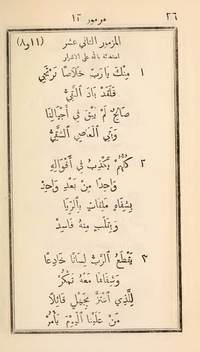 ٢٦ مزمور ١٢
المزمور الثاني عشر (١١ و٨)
استغاثة بالله على الأشرار
١ مِنْكَ يَا رَبِّ خَلَاصًا نَرْتَجِي
فَلَقَدْ بَادَ التَّقِيُّ
صَالِحٌ لَمْ يَبْقَ فِي أَجْيَالِنَا
وَبَقِي الْعَاصِي الشَّقِيُّ
٢ كُلُّهُمْ يَكْذِبُ فِي أَقْوَالِهِ
وَاحِدًا مِنْ بَعْدِ وَاحِدٍ
بِشِفَاهٍ مَلِقَاتٍ بِالرِّيَا
وَبِقَلْبٍ مِنْهُ فَاسِدْ
٣ يَقْطَعُ الرَّبُّ لِسَانًا خَادِعًا
وَشِفَاهًا مَعَهُ تَمْكُرْ
لِلَّذِي افْتَرَّ بِجَهْلٍ قَائِلًا
مَنْ عَلَيْنَا الْيَوْمَ يَأْمُرْ